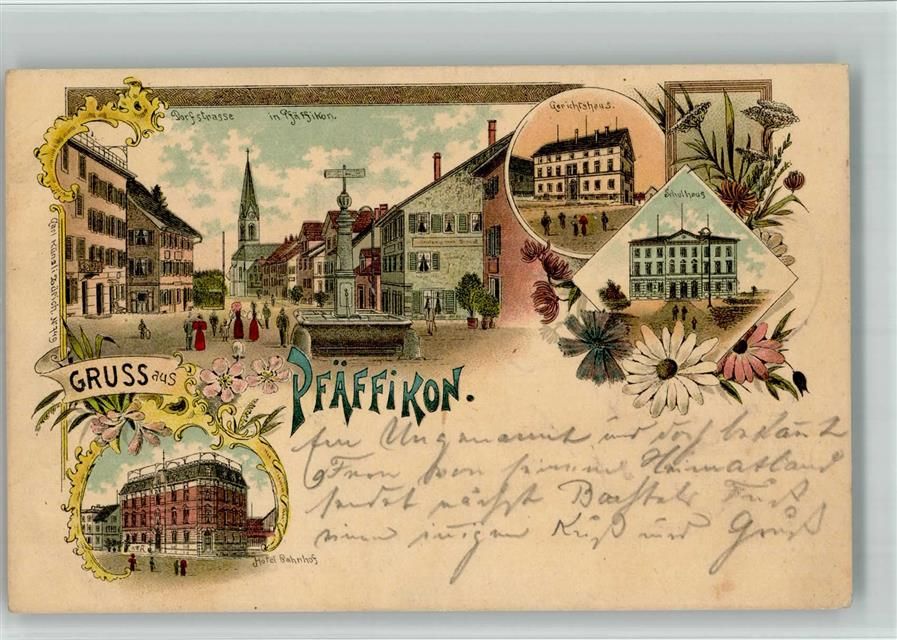 Dorfstrasse in Pfäffikon.
Gerichtshaus.
Schulhaus
Carl Künzli, Zürich. No 449
GRUSS aus
PFÄFFIKON.
Hotel Bahnhof
Ein Ungenannt und doch bekannt
Fern von seinem Heimatland
sendet nächst Bachtels Fuß
einen innigen Kuß und Gruß